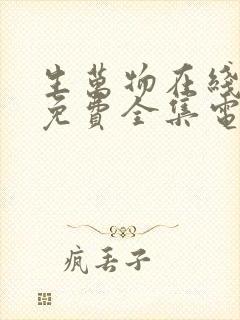 生萬物在綫
免費全集電
疯丢子